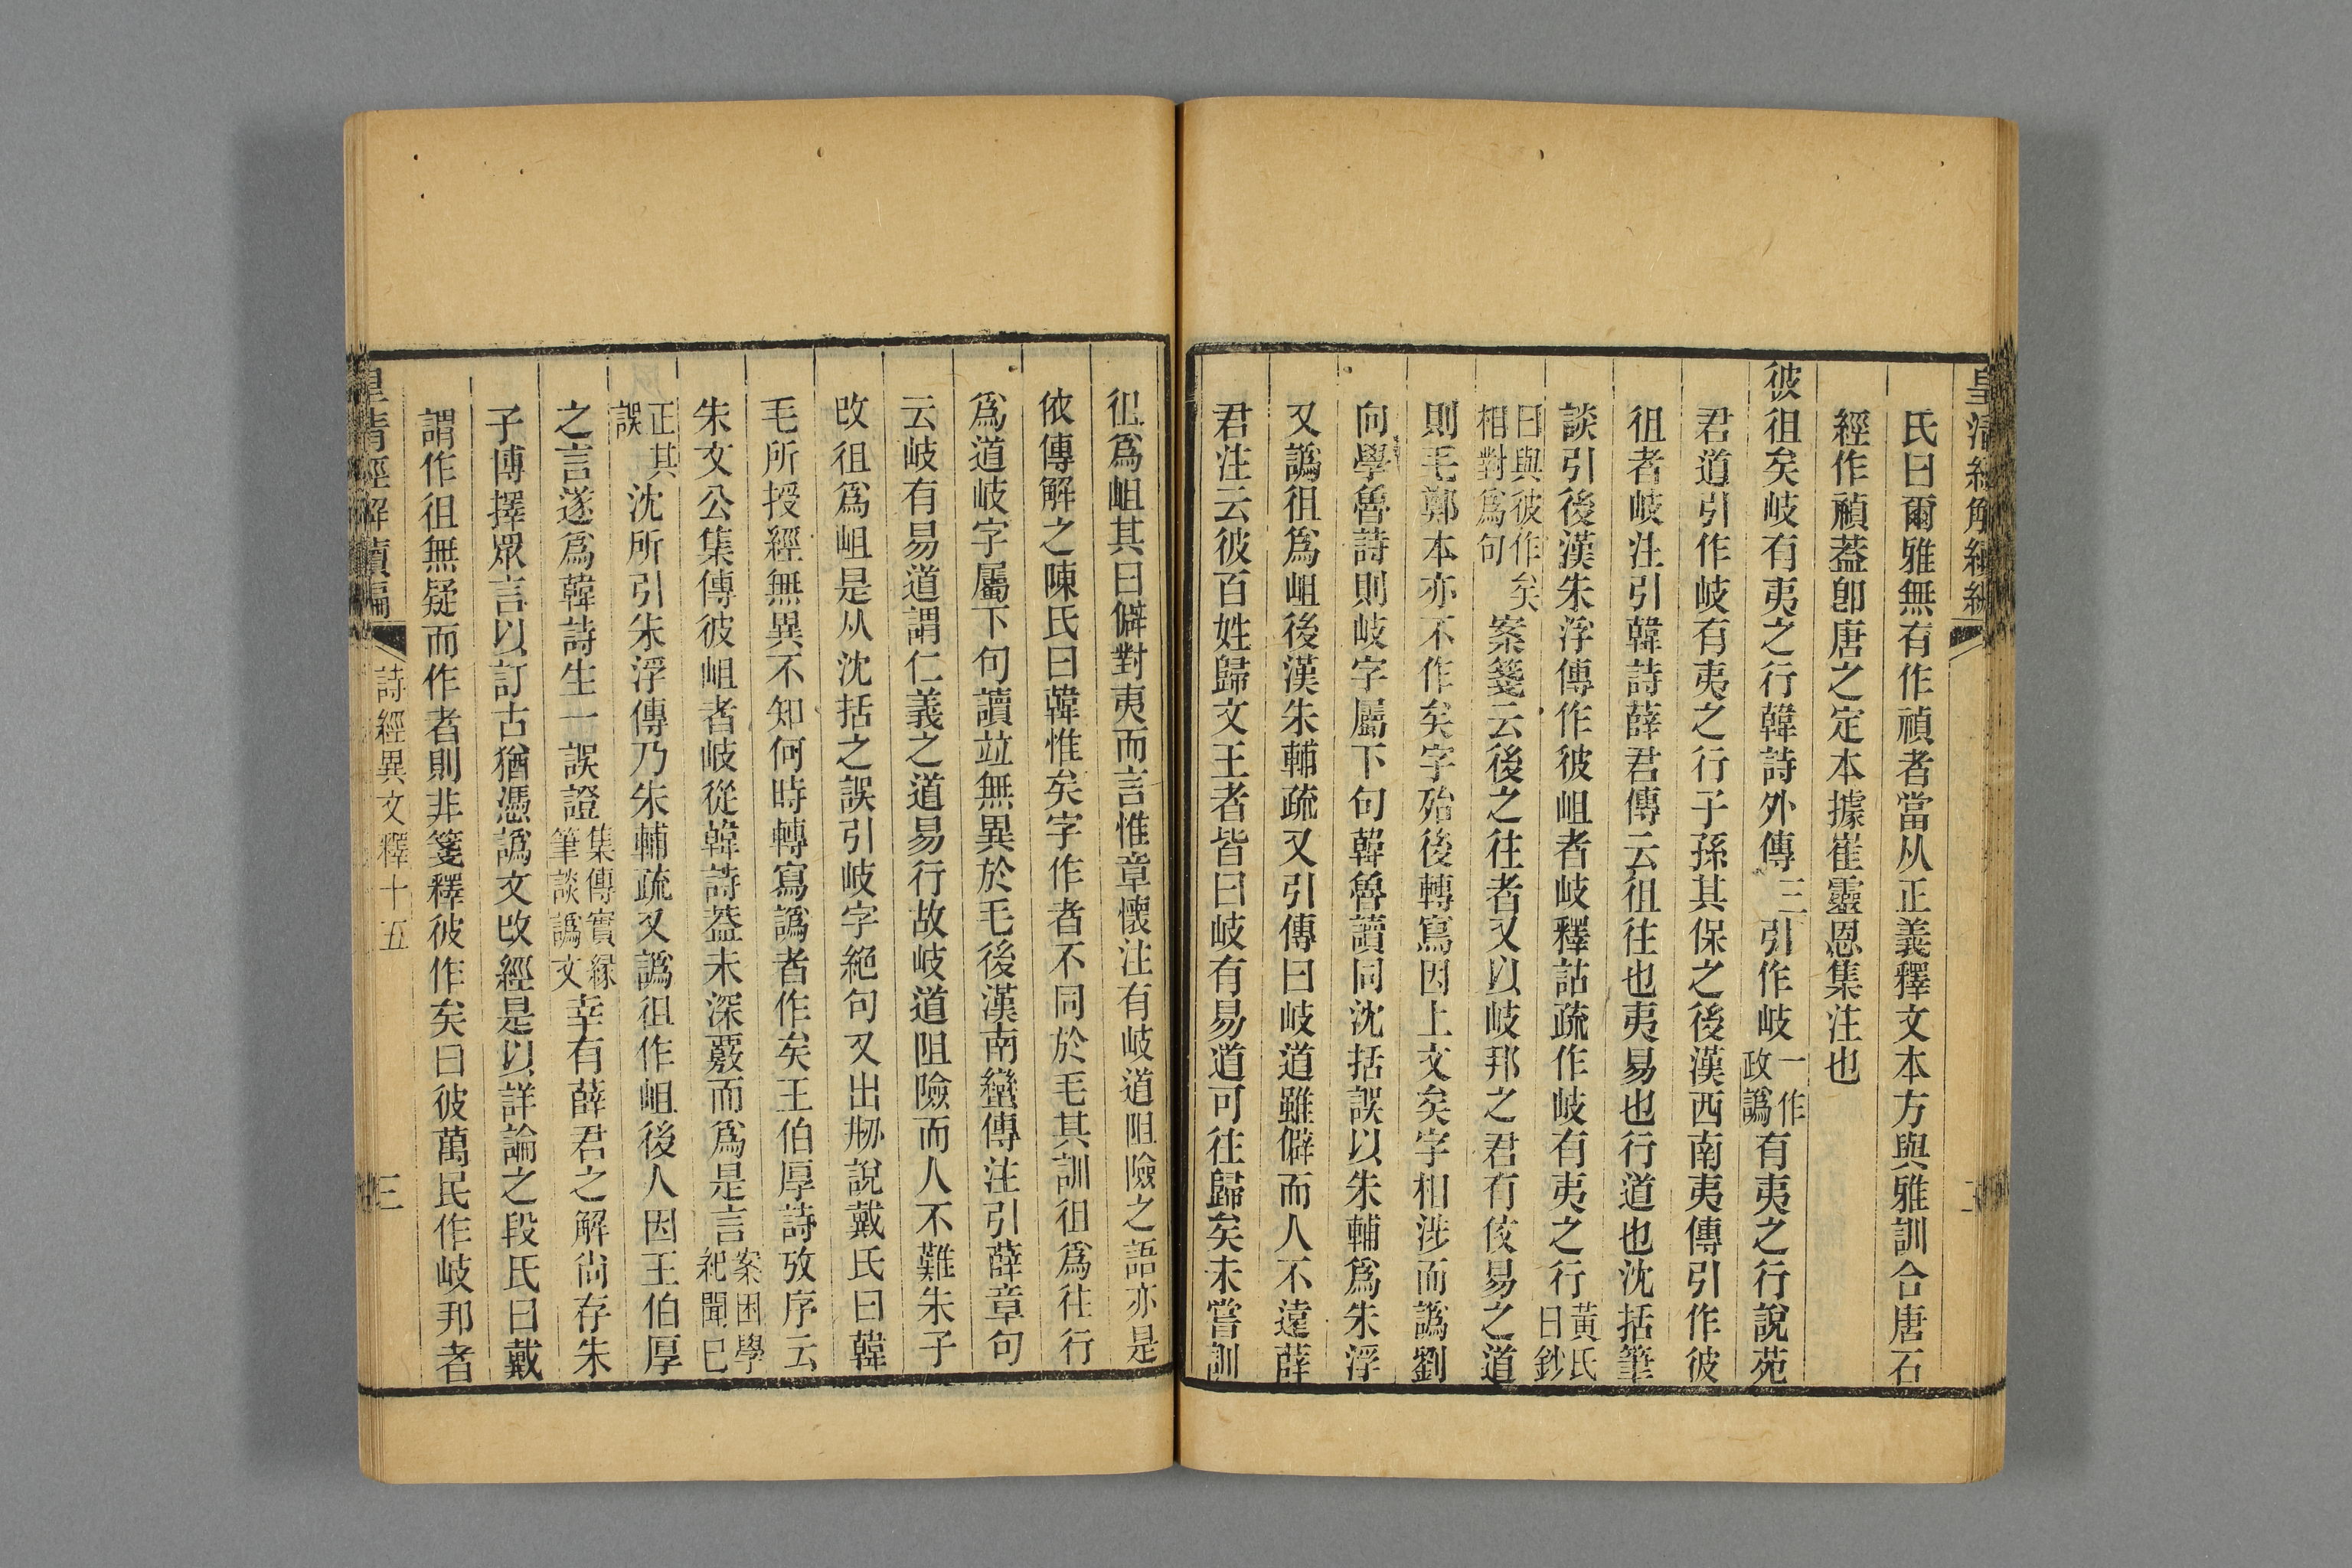 皇清經解續編
氏曰爾雅無有作禎者當从正義釋文本方與雅訓合唐石
經作禎葢卽唐之定本據崔靈恩集注也
彼徂矣岐有夷之行韓詩外傳三引作岐一作政譌有夷之行說苑
君道引作岐有夷之行子孫其保之後漢西南夷傳引作彼
徂者岐注引韓詩薛君傳云徂往也夷易也行道也沈括筆
談引後漢朱浮傳作彼岨者岐釋詁疏作岐有夷之行黃氏日鈔
曰與彼作矣相對爲句案箋云後之往者又以岐邦之君有佼易之道
則毛鄭本亦不作矣字殆後轉寫因上文矣字相涉而譌劉
向學魯詩則岐字屬下句韓魯讀同沈括誤以朱輔爲朱浮
又譌徂爲岨後漢朱輔疏又引傳曰岐道雖僻而人不遠薛
君注云彼百姓歸文王者皆曰岐有易道可往歸矣未嘗訓
徂爲岨其曰僻對夷而言惟章懷注有岐道阻險之語亦是
依傳解之陳氏曰韓惟矣字作者不同於毛其訓徂爲往行
爲道岐字屬下句讀竝無異於毛後漢南蠻傳注引薛章句
云岐有易道謂仁義之道易行故岐道阻險而人不難朱子
改徂爲岨是从沈括之誤引岐字絕句又出刱說戴氏曰韓
毛所授經無異不知何時轉寫譌者作矣王伯厚詩攷序云
朱文公集傳彼岨者岐從韓詩葢未深覈而爲是言案困學紀聞已
正其誤沈所引朱浮傳乃朱輔疏又譌徂作岨後人因王伯厚
之言遂爲韓詩生一誤證集傳實緣筆談譌文幸有薛君之解尙存朱
子博擇眾言以訂古猶憑譌文改經是以詳論之段氏曰戴
謂作徂無疑而作者則非箋釋彼作矣曰彼萬民作岐邦者
皇清經解續編
詩經異文釋十五
三